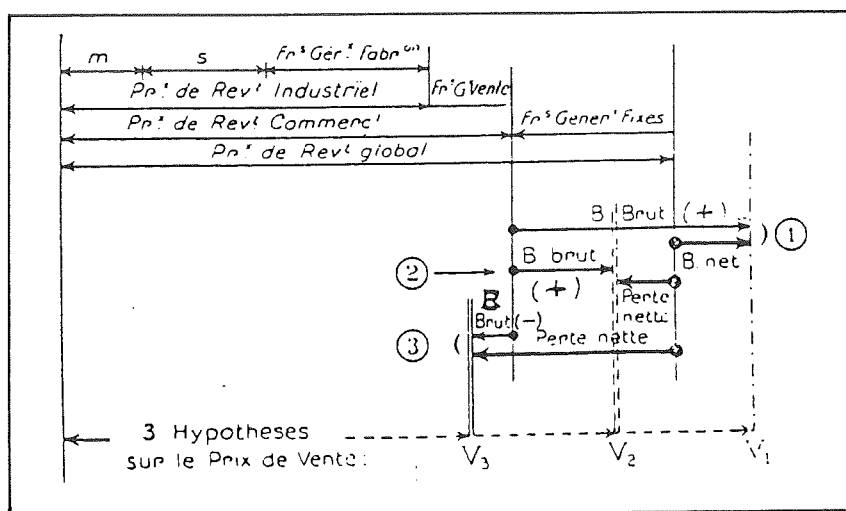 m s Frˢ Gérˣ Fabrᵒⁿ
Prˣ de Revᵗ Industriel Frˢ G Vente
Prˣ de Revᵗ Commercˡ Frˢ Generˣ Fixes
Prˣ de Revᵗ global
B Brut (+) ①
② B brut B. net
(+) Perte nette
B Brut (−)
③ Perte nette
3 Hypotheses
sur le Prix de Vente: V₃ V₂ V₁